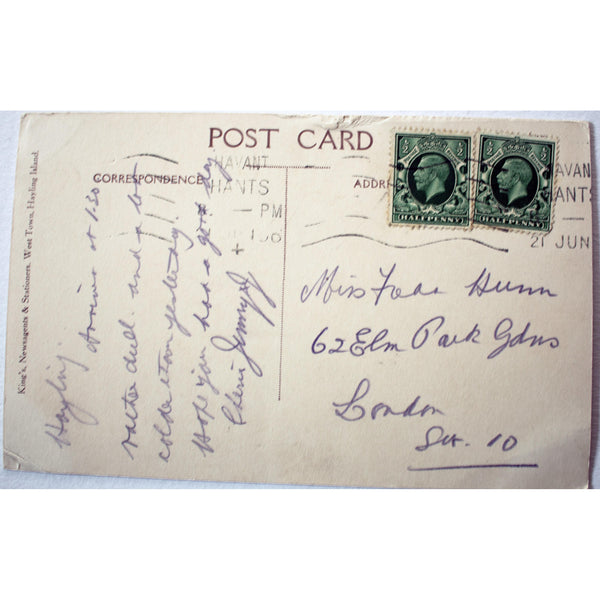 POST CARD
CORRESPONDENCE
ADDR
HAVANT
HANTS
– PM
HALFPENNY
HALFPENNY
AVAN
ANTS
21 JUN
King's, Newsagents & Stationers, West Town, Hayling Island.
Hayling.
Arrived at 1.30
rather dull and a bit
colder than yesterday.
Hope you had a good day
Miss Hunn
62 Elm Park Gdns
London
S.W. 10